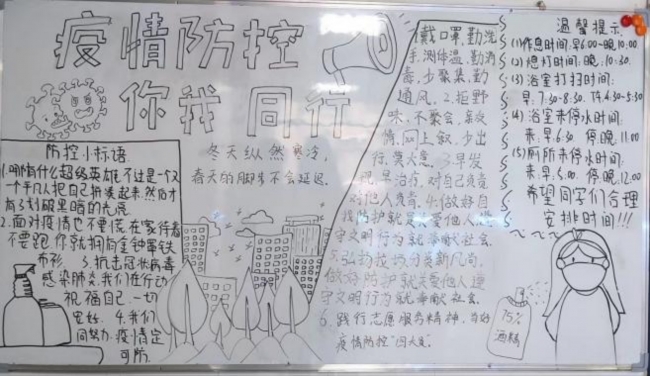 疫情防控
你我同行
防控小标语
1.哪有什么超级英雄不过是一个又
一个平凡人把自己拼凑起来然后才
有了划破黑暗的光亮
2.面对疫情也不要慌在家待着
不要跑你就拥有金钟罩铁
布衫 3.抗击冠状病毒
感染肺炎,我们在行动
祝福自己一切
安好 4.我们
同努力疫情定
可防
冬天纵然寒冷,
春天的脚步不会延迟.
1.戴口罩,勤洗
手,测体温,勤消
毒,少聚集,勤
通风,2.拒野
味,不聚会,亲友
情,网上叙,少出
行,莫大意,3.早发
现,早治疗,对自己负责
对他人负责,4.做好自
我防护就是关爱他人,遵
守文明行为就是奉献社会,
5.弘扬垃圾分类新风尚,
做好防护就是关爱他人遵
守文明行为就是奉献社会.
6.践行志愿服务精神,当好
疫情防控"四大员".
温馨提示
(1)作息时间.早6:00~晚10:00
(2)熄灯时间:晚.10:30.
(3)浴室打扫时间:
早:7:30-8:30.
4:30-5:30
(4)浴室来停水时间:
来.早6.30 停.晚.11.00
(5)厕所来停水时间:
来.早5.00. 停.晚.12.00
希望同学们合理
安排时间!!!
75%
酒精